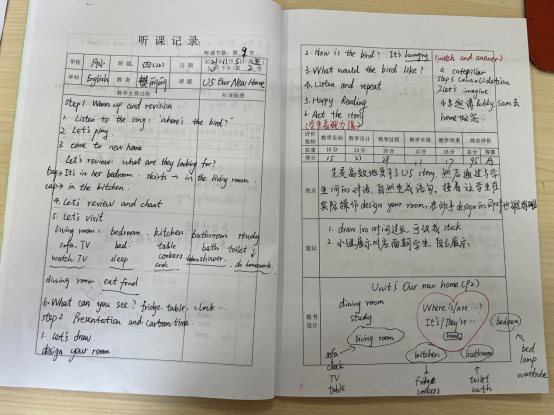 听课记录
听课节数：第 9 节
学校
班级 四(2) 日期 2021年11月5日
学科 English 教者 课题 U5 Our New Home
教学主要过程 听课随感
step 1 Warm up and revision
1. Listen to the song: where's the bird?
2. Let's play.
3. come to new home
Let's review: what are they looking for?
It's in her bedroom. skirts → in the living room.
cap → in the kitchen.
4. Let's review and chant
5. Let's visit
living room, bedroom, kitchen, bathroom study
sofa. TV bed. table bath toilet
cookers
watch TV sleep cook shower. do homework.
dining room. eat food
6. What can you see? fridge. table. clock...
step 2 Presentation and Cartoon time
1. Let's draw
design your room
2. How is the bird? It's hungry (watch and answer)
3. What would the bird like? a caterpillar
4. Listen and repeat step 3 Consolidation
5. Happy Reading 1 Let's imagine
6. Act the story 小鸟邀请 Bobby, Sam去
(学生表现力强) home做客.
评价指标 教学目标 教学设计 教学过程 教学手段 教学效果 综合评价
权重 总分 等第
得分 15 23 17 95 A
亮点
先是高效地复习了U5 story, 然后通过与学
生间的对话, 自然生成语句, 接着让学生在
实际操作design your room, 在动手design的同时
建议
1. draw 时间过长, 可改成 stick
2. 小组展示时应面朝学生, 自信展示.
板书设计
Unit 5 Our new home (P2)
dining room
study
Where is/are ...?
It's/They're ...
home
living room
kitchen
bathroom
bedroom
sofa
clock
TV
table
fridge
cookers
toilet
bath
bed
lamp
wardrobe